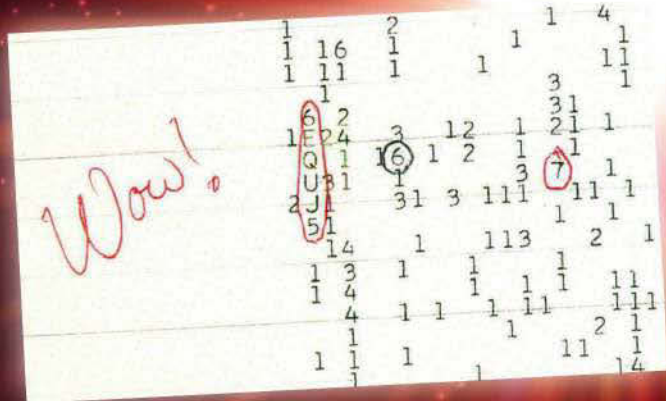 1 2 1 4
1 16 1 1 1
1 11 1 1 11
1 3 1
6 2 31
1 E 24 3 12 1 21 1
Q 1 16 1 2 1 1
U 31 1 3 7 1
2 J 1 31 3 111 11 1
5 1 1 1
14 1 113 2 1
1 3 1 1 1
1 4 1 1 1 11
4 1 1 1 11 111
1 1 2 1
1 1 1 11 1
1 1 14
Wow!